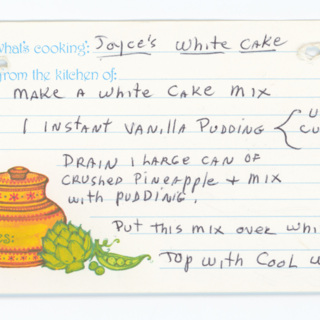 what's cooking: Joyce's White Cake
from the kitchen of:
Make a white cake mix
1 instant vanilla pudding {
Drain 1 large can of
crushed pineapple + mix
with pudding.
Put this mix over
Top with Cool